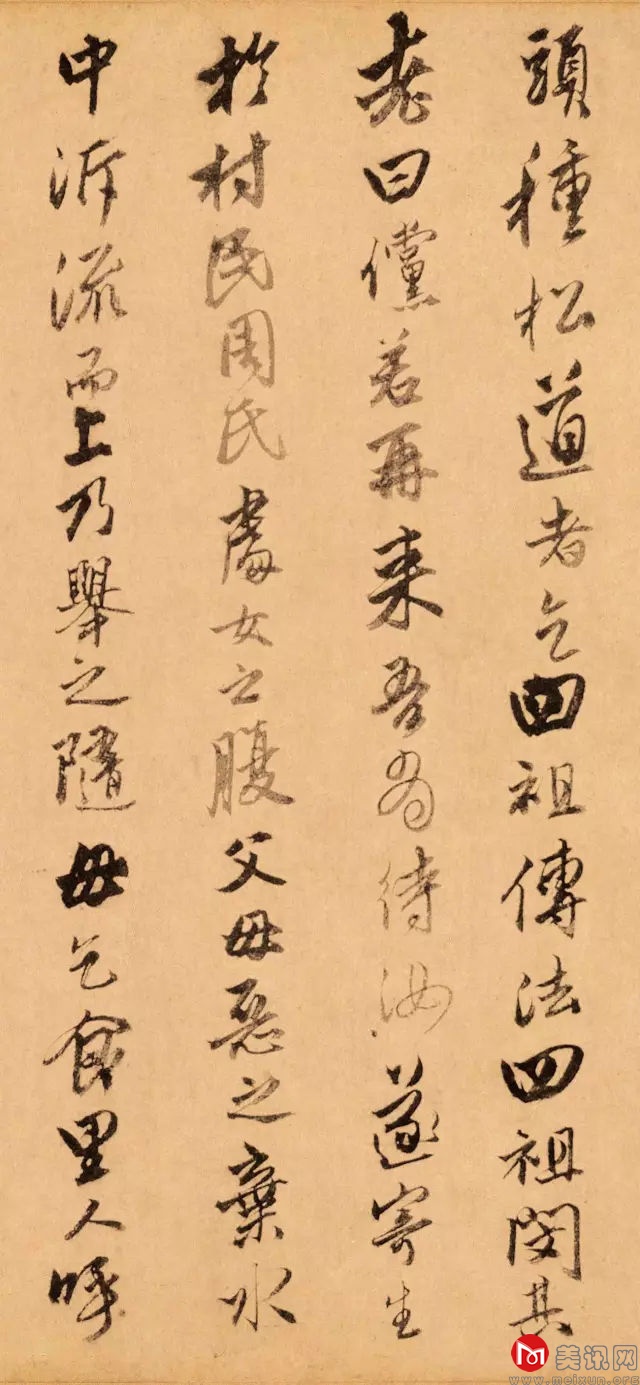 頭種松道者乞四祖傳法四祖閔其
老曰儻若再来吾為待汝遂寄生
於村民周氏處女之腹父母惡之棄水
中泝流而上乃舉之隨母乞食里人呼
美讯网
www.meixun.org